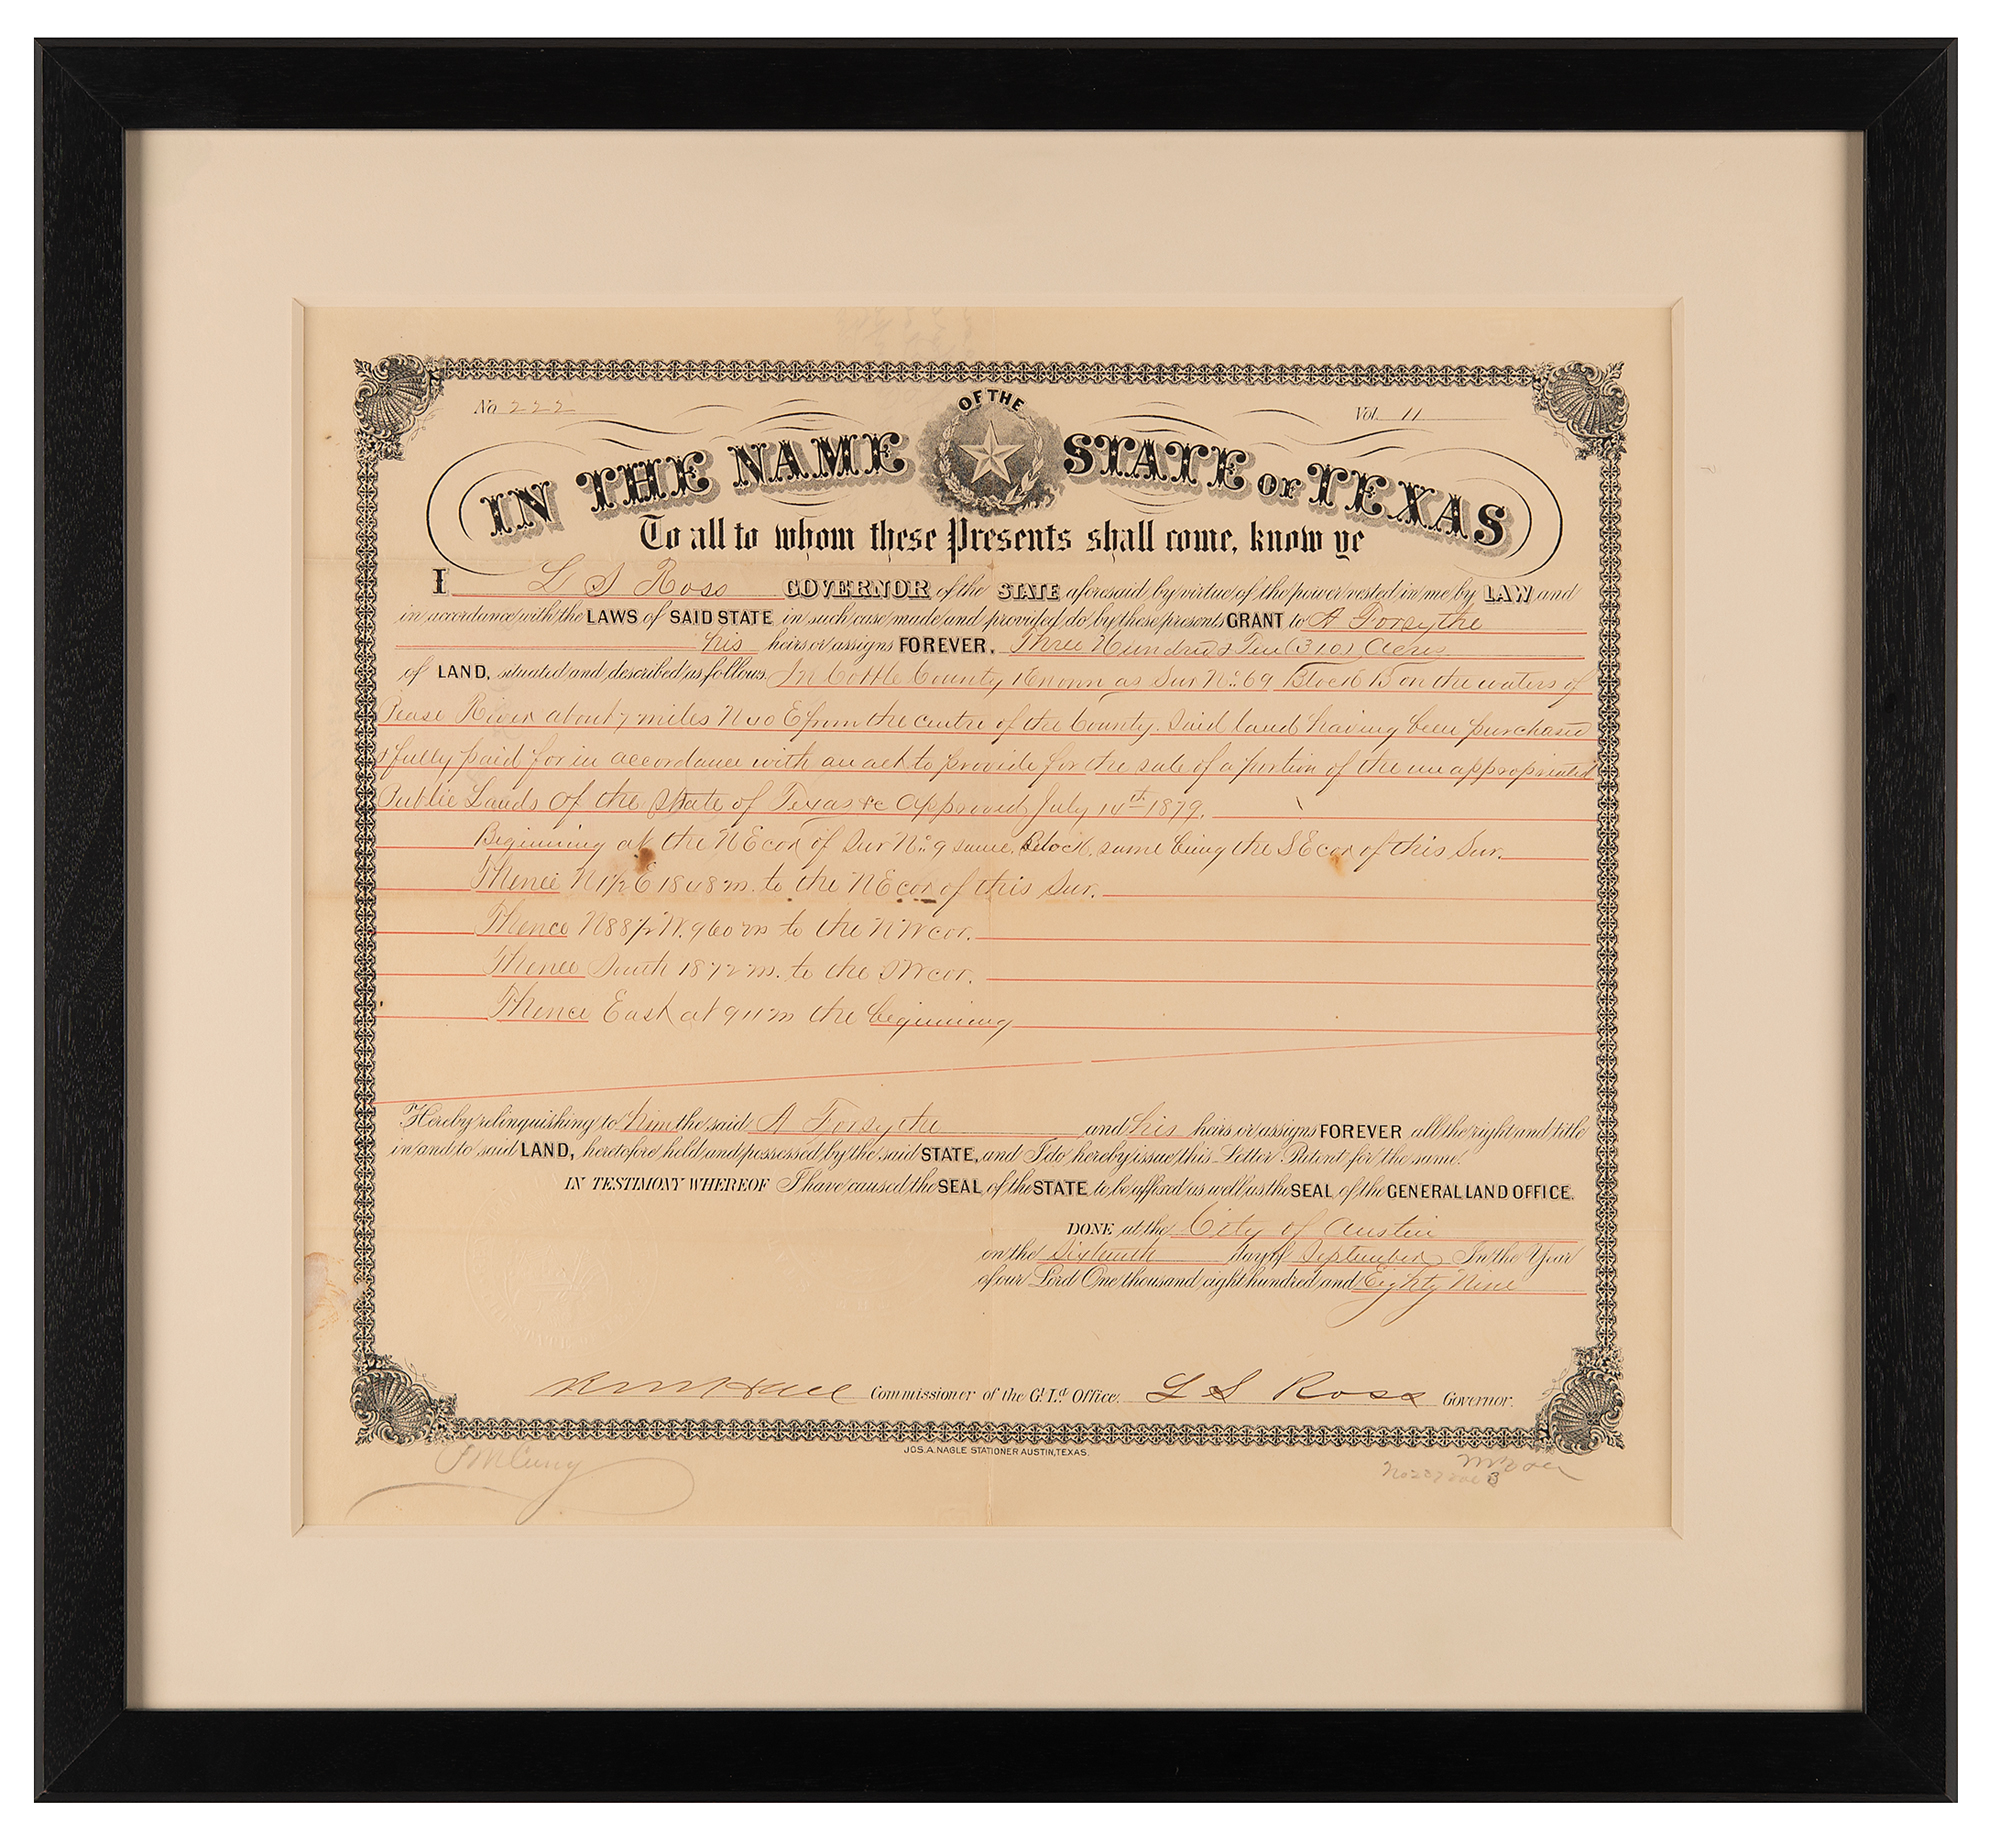 No 222
Vol. 11
IN THE NAME OF THE STATE OF TEXAS
To all to whom these Presents shall come, know ye
I L S Ross GOVERNOR of the STATE aforesaid by virtue of the power vested in me by LAW and
in accordance with the LAWS of SAID STATE in such case made and provided do by these presents GRANT to A Forsythe
his heirs or assigns FOREVER, Three Hundred & Ten (310) Acres
of LAND, situated and described as follows. In Cottle County Known as Sur No. 69 Block B on the waters of
Pease River about 7 miles N E from the centre of the County. Said land having been purchased
& fully paid for in accordance with an act to provide for the sale of a portion of the unappropriated
Public Lands of the State of Texas &c Approved July 14th 1879.
Beginning at the N E cor of Sur No. 9 same Block, same being the S E cor of this Sur.
Thence N 1/2 E 1848 to the N E cor of this Sur.
Thence N 88 1/2 W. 960 to the N W cor.
Thence South 1872 to the S W cor.
Thence East at the beginning
Hereby relinquishing to him the said A Forsythe and his heirs or assigns FOREVER all the right and title
in and to said LAND, heretofore held and possessed by the said STATE, and I do hereby issue this Letter Patent for the same.
IN TESTIMONY WHEREOF I have caused the SEAL of the STATE to be affixed as well as the SEAL of the GENERAL LAND OFFICE.
DONE at the City of Austin
on the Sixteenth day of September In the Year
of our Lord One thousand eight hundred and Eighty Nine
R M Hall Commissioner of the Gl. Ld. Office. L S Ross Governor.
JOS. A. NAGLE STATIONER AUSTIN, TEXAS.